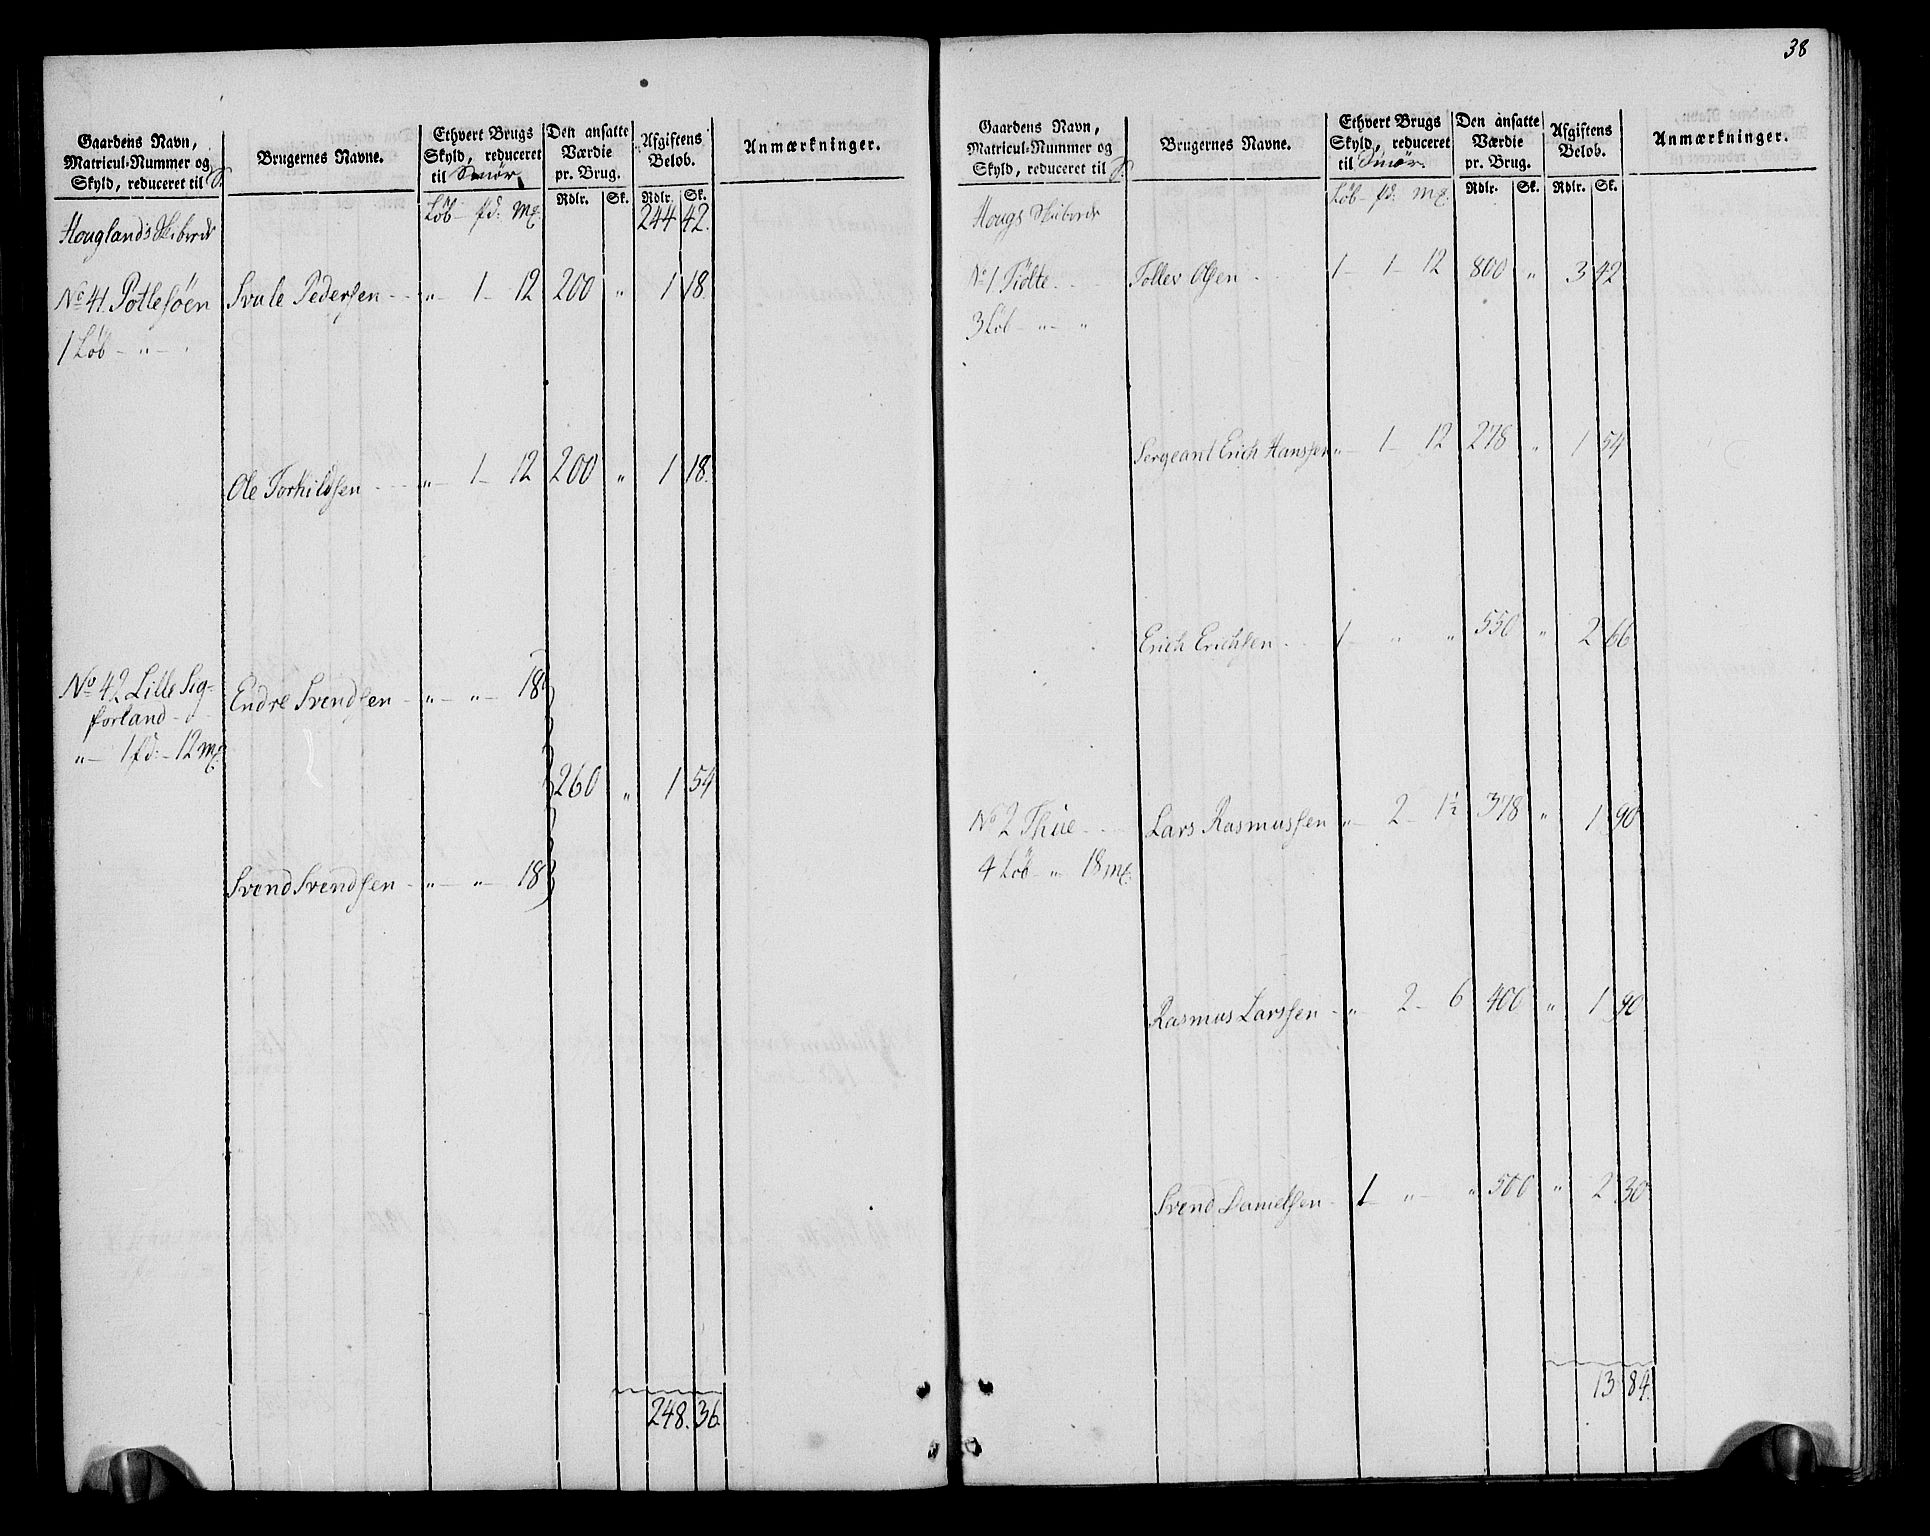 38
Gaardens Navn, Matricul-Nummer og Skyld, reduceret til S.
Brugernes Navne.
Ethvert Brugs Skyld, reduceret til Smør.
Den ansatte Værdie pr. Brug.
Afgiftens Beløb.
Anmærkninger.
Rdlr. Sk. Rdlr. Sk.
Løb - pd: - mk:
Houglands Skibrede 244 42.
No 41. Potlesøen Svale Pedersen - „ - 1 - 12 200 „ 1 18.
1 Løb - „ - „
Ole Torkildsen - „ - 1 - 12 200 „ 1 18.
No 42 Lille Sig-
forland - Endre Svendsen - „ - „ - 18
„ - 1 pd: - 12 mk
260 „ 1 54
Svend Svendsen - „ - „ - 18
248. 36.
Gaardens Navn, Matricul-Nummer og Skyld, reduceret til S.
Brugernes Navne.
Ethvert Brugs Skyld, reduceret til Smør.
Den ansatte Værdie pr. Brug.
Afgiftens Beløb.
Anmærkninger.
Rdlr. Sk. Rdlr. Sk.
Løb - pd: mk:
Hougs Skibrede
No 1 Tiølte Tollev Olsen 1 - 1 - 12 800 „ 3 42.
3 Løb - „ - „
Sergeant Erich Hanssen „ - 1 - 12 278 „ 1 54
Erich Erichsen - 1 - „ „ 550 „ 2 66
No 2 Thue - Lars Rasmussen „ - 2 - 1½ 378 „ 1 90
4 Løb - „ 18 mk:
Rasmus Larssen - „ 2 - 6 400 „ 1 90
Svend Danielsen - 1 - „ - „ 500 „ 2 30
13 84.